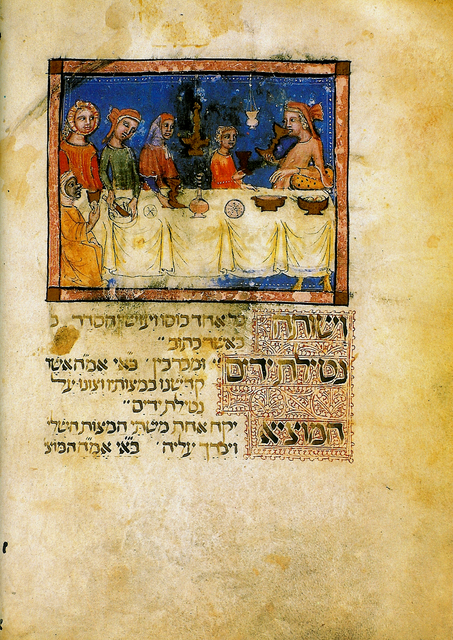 ושותה כל אחד כוסו ויעשו הסדר כ
כאשר כתוב״
נטילת ידים ומברכין בא״י אמ״ה אשר
קדשנו במצותיו וצונו על
נטילת ידים״
המוציא יקח אחת משתי המצות השל
ויברך עליה בא״י אמ״ה המוצ